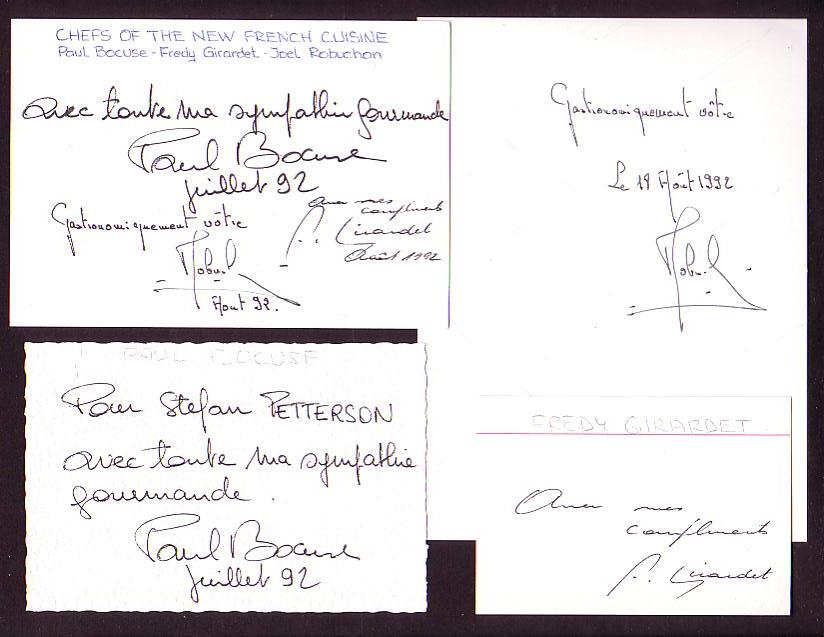 CHEFS OF THE NEW FRENCH CUISINE
Paul Bocuse - Fredy Girardet - Joel Robuchon
avec toute ma sympathie gourmande
Paul Bocuse
juillet 92
Gastronomiquement vôtre
Robuch
Août 92.
Avec mes
compliments
F. Girardet
Août 1992
Gastronomiquement vôtre
Le 18 Août 1992
Robuch
PAUL BOCUSE
Pour Stefan PETTERSON
avec toute ma sympathie
gourmande.
Paul Bocuse
juillet 92
FREDY GIRARDET
Avec mes
compliments
F. Girardet